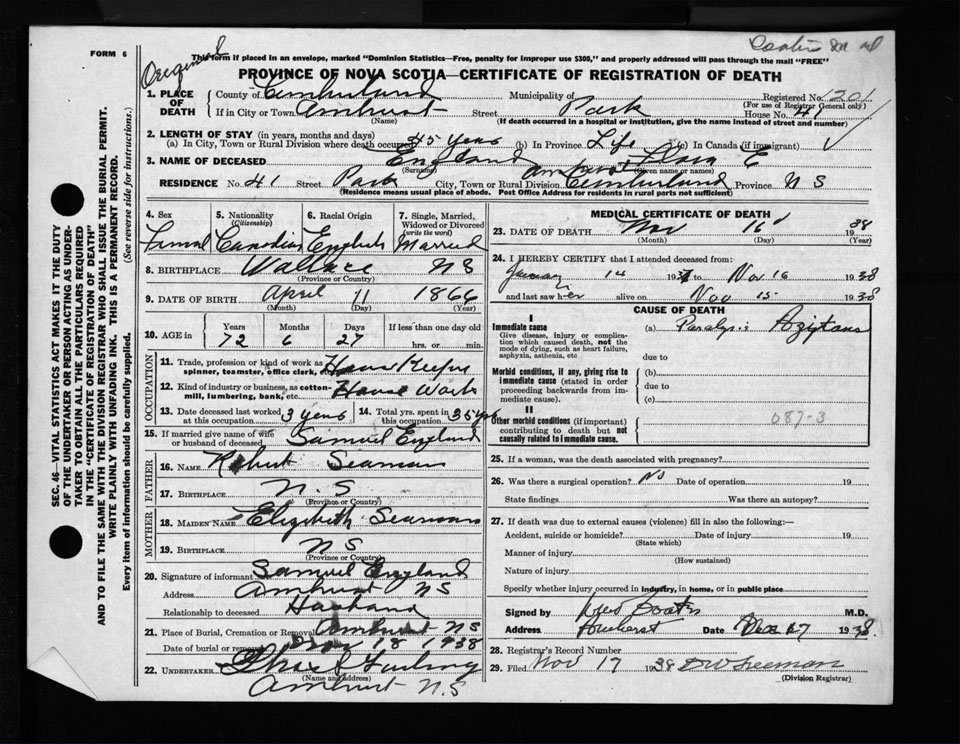 Coates M D
FORM 6
Original
This form if placed in an envelope, marked "Dominion Statistics—Free, penalty for improper use $300," and properly addressed will pass through the mail "FREE"
PROVINCE OF NOVA SCOTIA—CERTIFICATE OF REGISTRATION OF DEATH
1. PLACE OF DEATH
County of Cumberland Municipality of Registered No. 1201
(For use of Registrar General only)
If in City or Town Amherst Street Park House No. 41
(Name) (If death occurred in a hospital or institution, give the name instead of street and number)
2. LENGTH OF STAY (in years, months and days)
(a) In City, Town or Rural Division where death occurred 45 years (b) In Province Life (c) In Canada (if immigrant)
3. NAME OF DECEASED England Flora E
(Surname) (Given name or names)
RESIDENCE No. 41 Street Park City, Town or Rural Division Amherst Cumberland Province N S
(Residence means usual place of abode. Post Office Address for residents in rural parts not sufficient)
SEC. 46—VITAL STATISTICS ACT MAKES IT THE DUTY
OF THE UNDERTAKER OR PERSON ACTING AS UNDER-
TAKER TO OBTAIN ALL THE PARTICULARS REQUIRED
IN THE "CERTIFICATE OF REGISTRATION OF DEATH"
AND TO FILE THE SAME WITH THE DIVISION REGISTRAR WHO SHALL ISSUE THE BURIAL PERMIT.
WRITE PLAINLY WITH UNFADING INK. THIS IS A PERMANENT RECORD.
Every item of information should be carefully supplied. (See reverse side for instructions.)
4. Sex 5. Nationality (Citizenship) 6. Racial Origin 7. Single, Married, Widowed or Divorced (write the word)
Canadian English Married
8. BIRTHPLACE Wallace N S
(Province or Country)
9. DATE OF BIRTH April 11 1866
(Month) (Day) (Year)
10. AGE in Years Months Days If less than one day old
72 6 27 hrs. or min.
OCCUPATION
11. Trade, profession or kind of work as spinner, teamster, office clerk, etc. House Keeper
12. Kind of industry or business, as cotton-mill, lumbering, bank, etc. House Work
13. Date deceased last worked at this occupation 3 years 14. Total yrs. spent in this occupation 35 yrs
15. If married give name of wife or husband of deceased Samuel England
FATHER
16. NAME Robert Seaman
17. BIRTHPLACE N.S
(Province or Country)
MOTHER
18. MAIDEN NAME Elizabeth Seaman
19. BIRTHPLACE N S
(Province or Country)
20. Signature of informant Samuel England
Address Amherst N S
Relationship to deceased Husband
21. Place of Burial, Cremation or Removal Amherst N S
Date of burial or removal Nov 18 1938
22. UNDERTAKER
(Name and address)
Amherst N.S
MEDICAL CERTIFICATE OF DEATH
23. DATE OF DEATH Nov 16 1938
(Month) (Day) (Year)
24. I HEREBY CERTIFY that I attended deceased from:
January 14 to Nov 16 1938
and last saw her alive on Nov 15 1938
CAUSE OF DEATH
I
Immediate cause
Give disease, injury or complication which caused death, not the mode of dying, such as heart failure, asphyxia, asthenia, etc
(a) Paralysis Agitans
due to
Morbid conditions, if any, giving rise to immediate cause (stated in order proceeding backwards from immediate).
(b)
due to
(c)
II
Other morbid conditions (if important) contributing to death but not causally related to immediate cause.
087-3
25. If a woman, was the death associated with pregnancy?
26. Was there a surgical operation? No Date of operation 19
State findings Was there an autopsy?
27. If death was due to external causes (violence) fill in also the following:—
Accident, suicide or homicide? Date of injury 19
(State which)
Manner of injury
(How sustained)
Nature of injury
Specify whether injury occurred in industry, in home, or in public place
Signed by Coates M.D.
Address Amherst Date 17 1938.
28. Registrar's Record Number
29. Filed Nov 17 1938 D W Freeman
(Division Registrar)